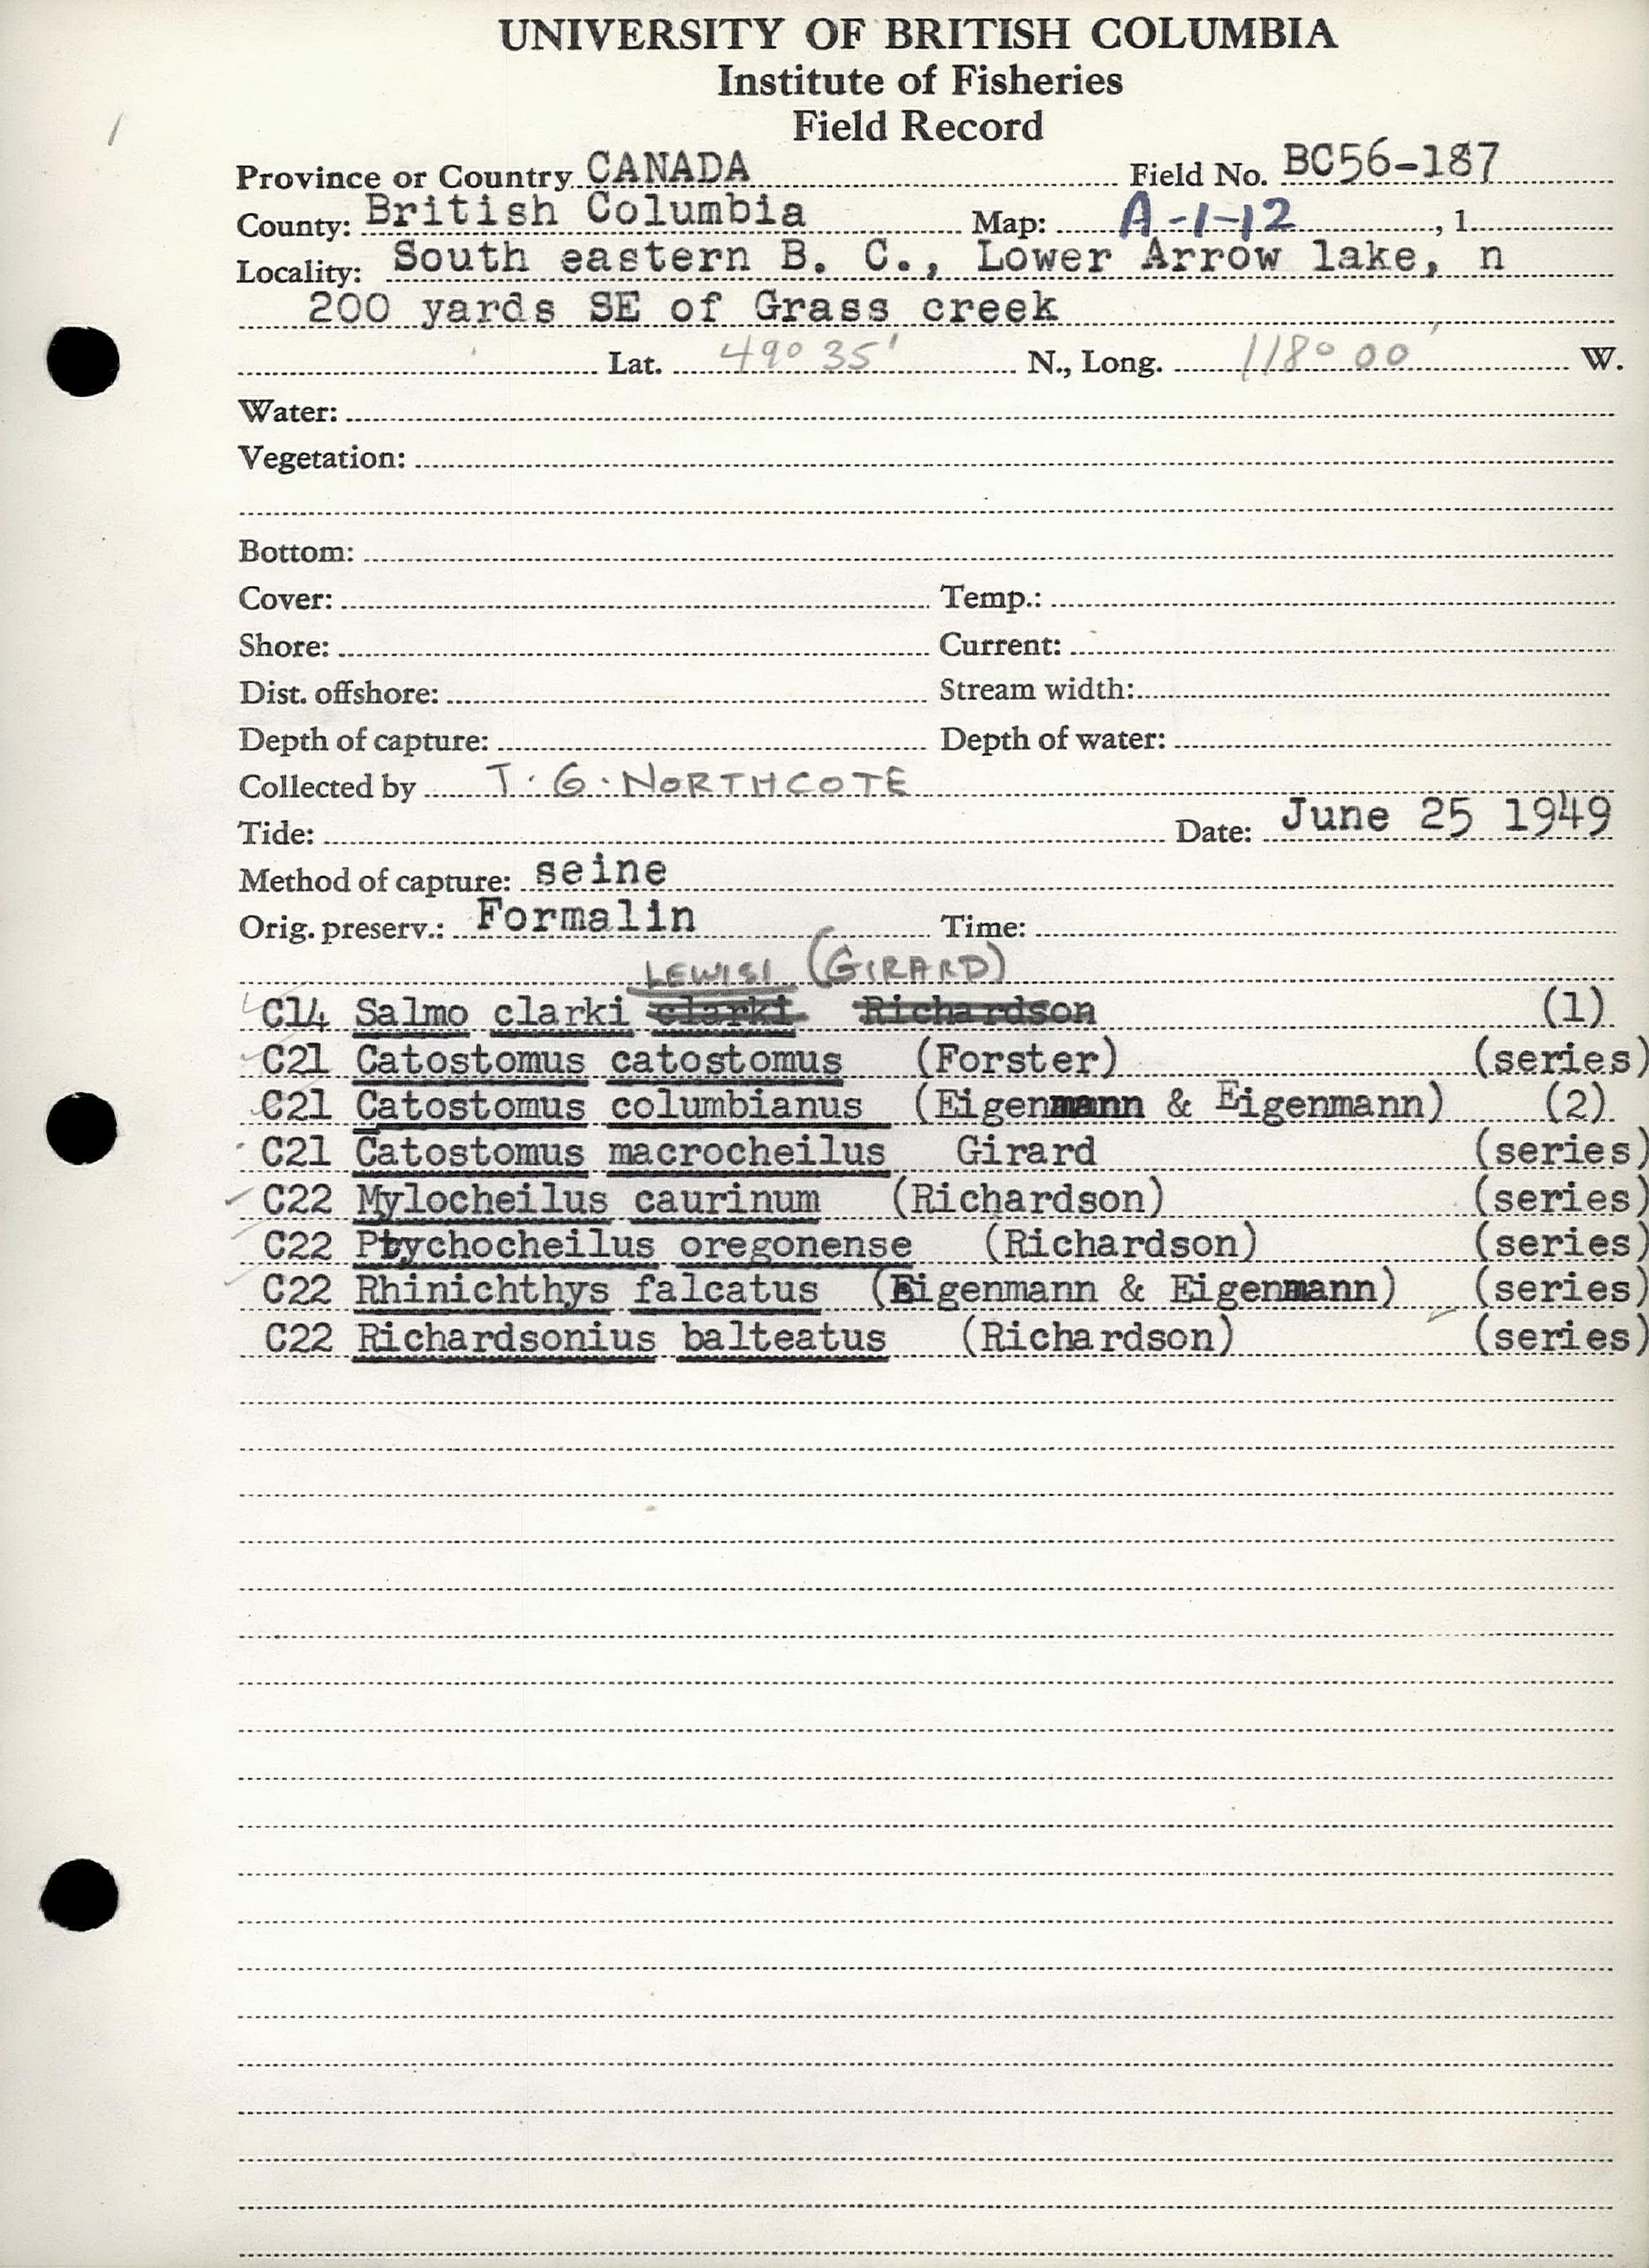 UNIVERSITY OF BRITISH COLUMBIA
Institute of Fisheries
Field Record
Province or Country CANADA Field No. BC56-187
County: British Columbia Map: A-1-12, 1
Locality: South eastern B. C., Lower Arrow lake, n
200 yards SE of Grass creek
Lat. 49° 35' N., Long. 118° 00' W.
Water:
Vegetation:
Bottom:
Cover: Temp.:
Shore: Current:
Dist. offshore: Stream width:
Depth of capture: Depth of water:
Collected by T. G. NORTHCOTE
Tide: Date: June 25 1949
Method of capture: seine
Orig. preserv.: Formalin Time:
LEWISI (GIRARD)
C14 Salmo clarki clarki Richardson (1)
C21 Catostomus catostomus (Forster) (series)
C21 Catostomus columbianus (Eigenmann & Eigenmann) (2)
C21 Catostomus macrocheilus Girard (series)
C22 Mylocheilus caurinum (Richardson) (series)
C22 Ptychocheilus oregonense (Richardson) (series)
C22 Rhinichthys falcatus (Eigenmann & Eigenmann) (series)
C22 Richardsonius balteatus (Richardson) (series)